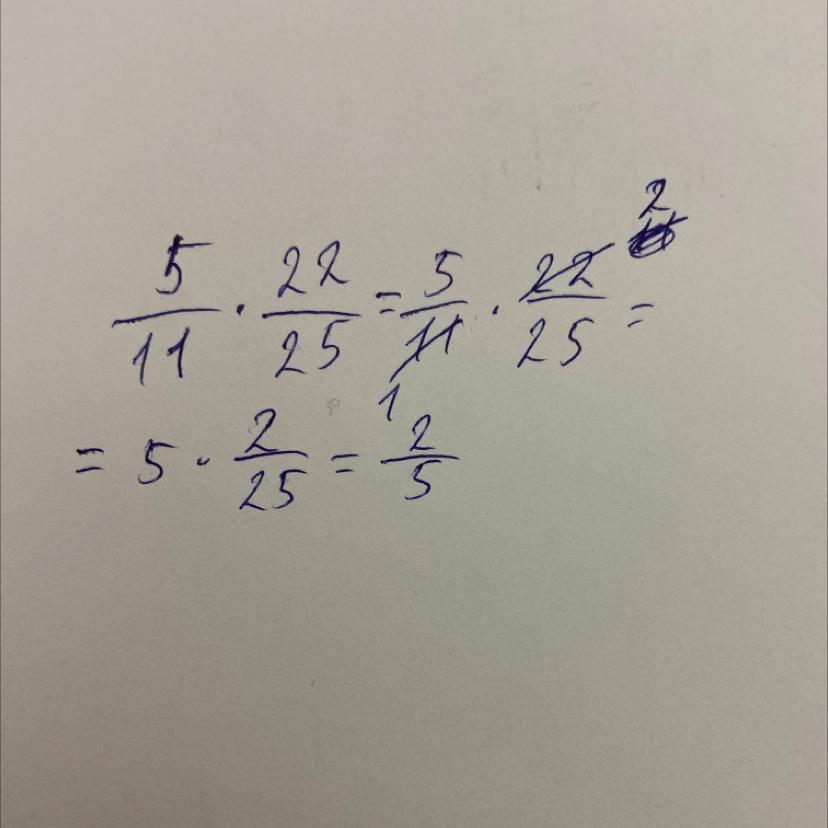 5/11 · 22/25 = 5/11 1 · 22/25 2 =
= 5 · 2/25 = 2/5